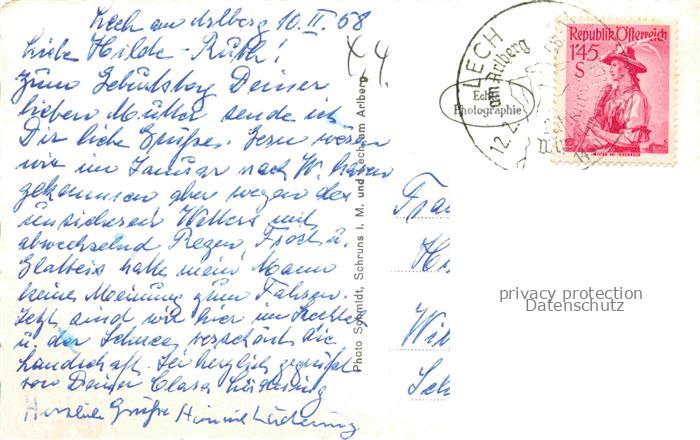 Lech am Arlberg 10.II.58
Liebe Hilde-Ruth!
Zum Geburtstag Deiner
lieben Mutter sende ich
Dir liebe Grüße. Gern wären
wir im Januar nach W. 
gekommen aber wegen des
unsicheren Wetters mit
abwechselnd Regen, Frost u.
Glatteis hatte mein Mann
keine Meinung zum Fahren.
Jetzt sind wir hier in
u. der Schnee verschönt die
Landschaft. Sei herzlich gegrüßt
von Deiner Clara
Herzliche Grüße
Photo Schmidt, Schruns i. M. und Lech am Arlberg
Echte
Photographie
LECH
am Arlberg
12.2.
Republik Österreich
1'45
S
Frau
H
Wi
Sch
privacy protection
Datenschutz